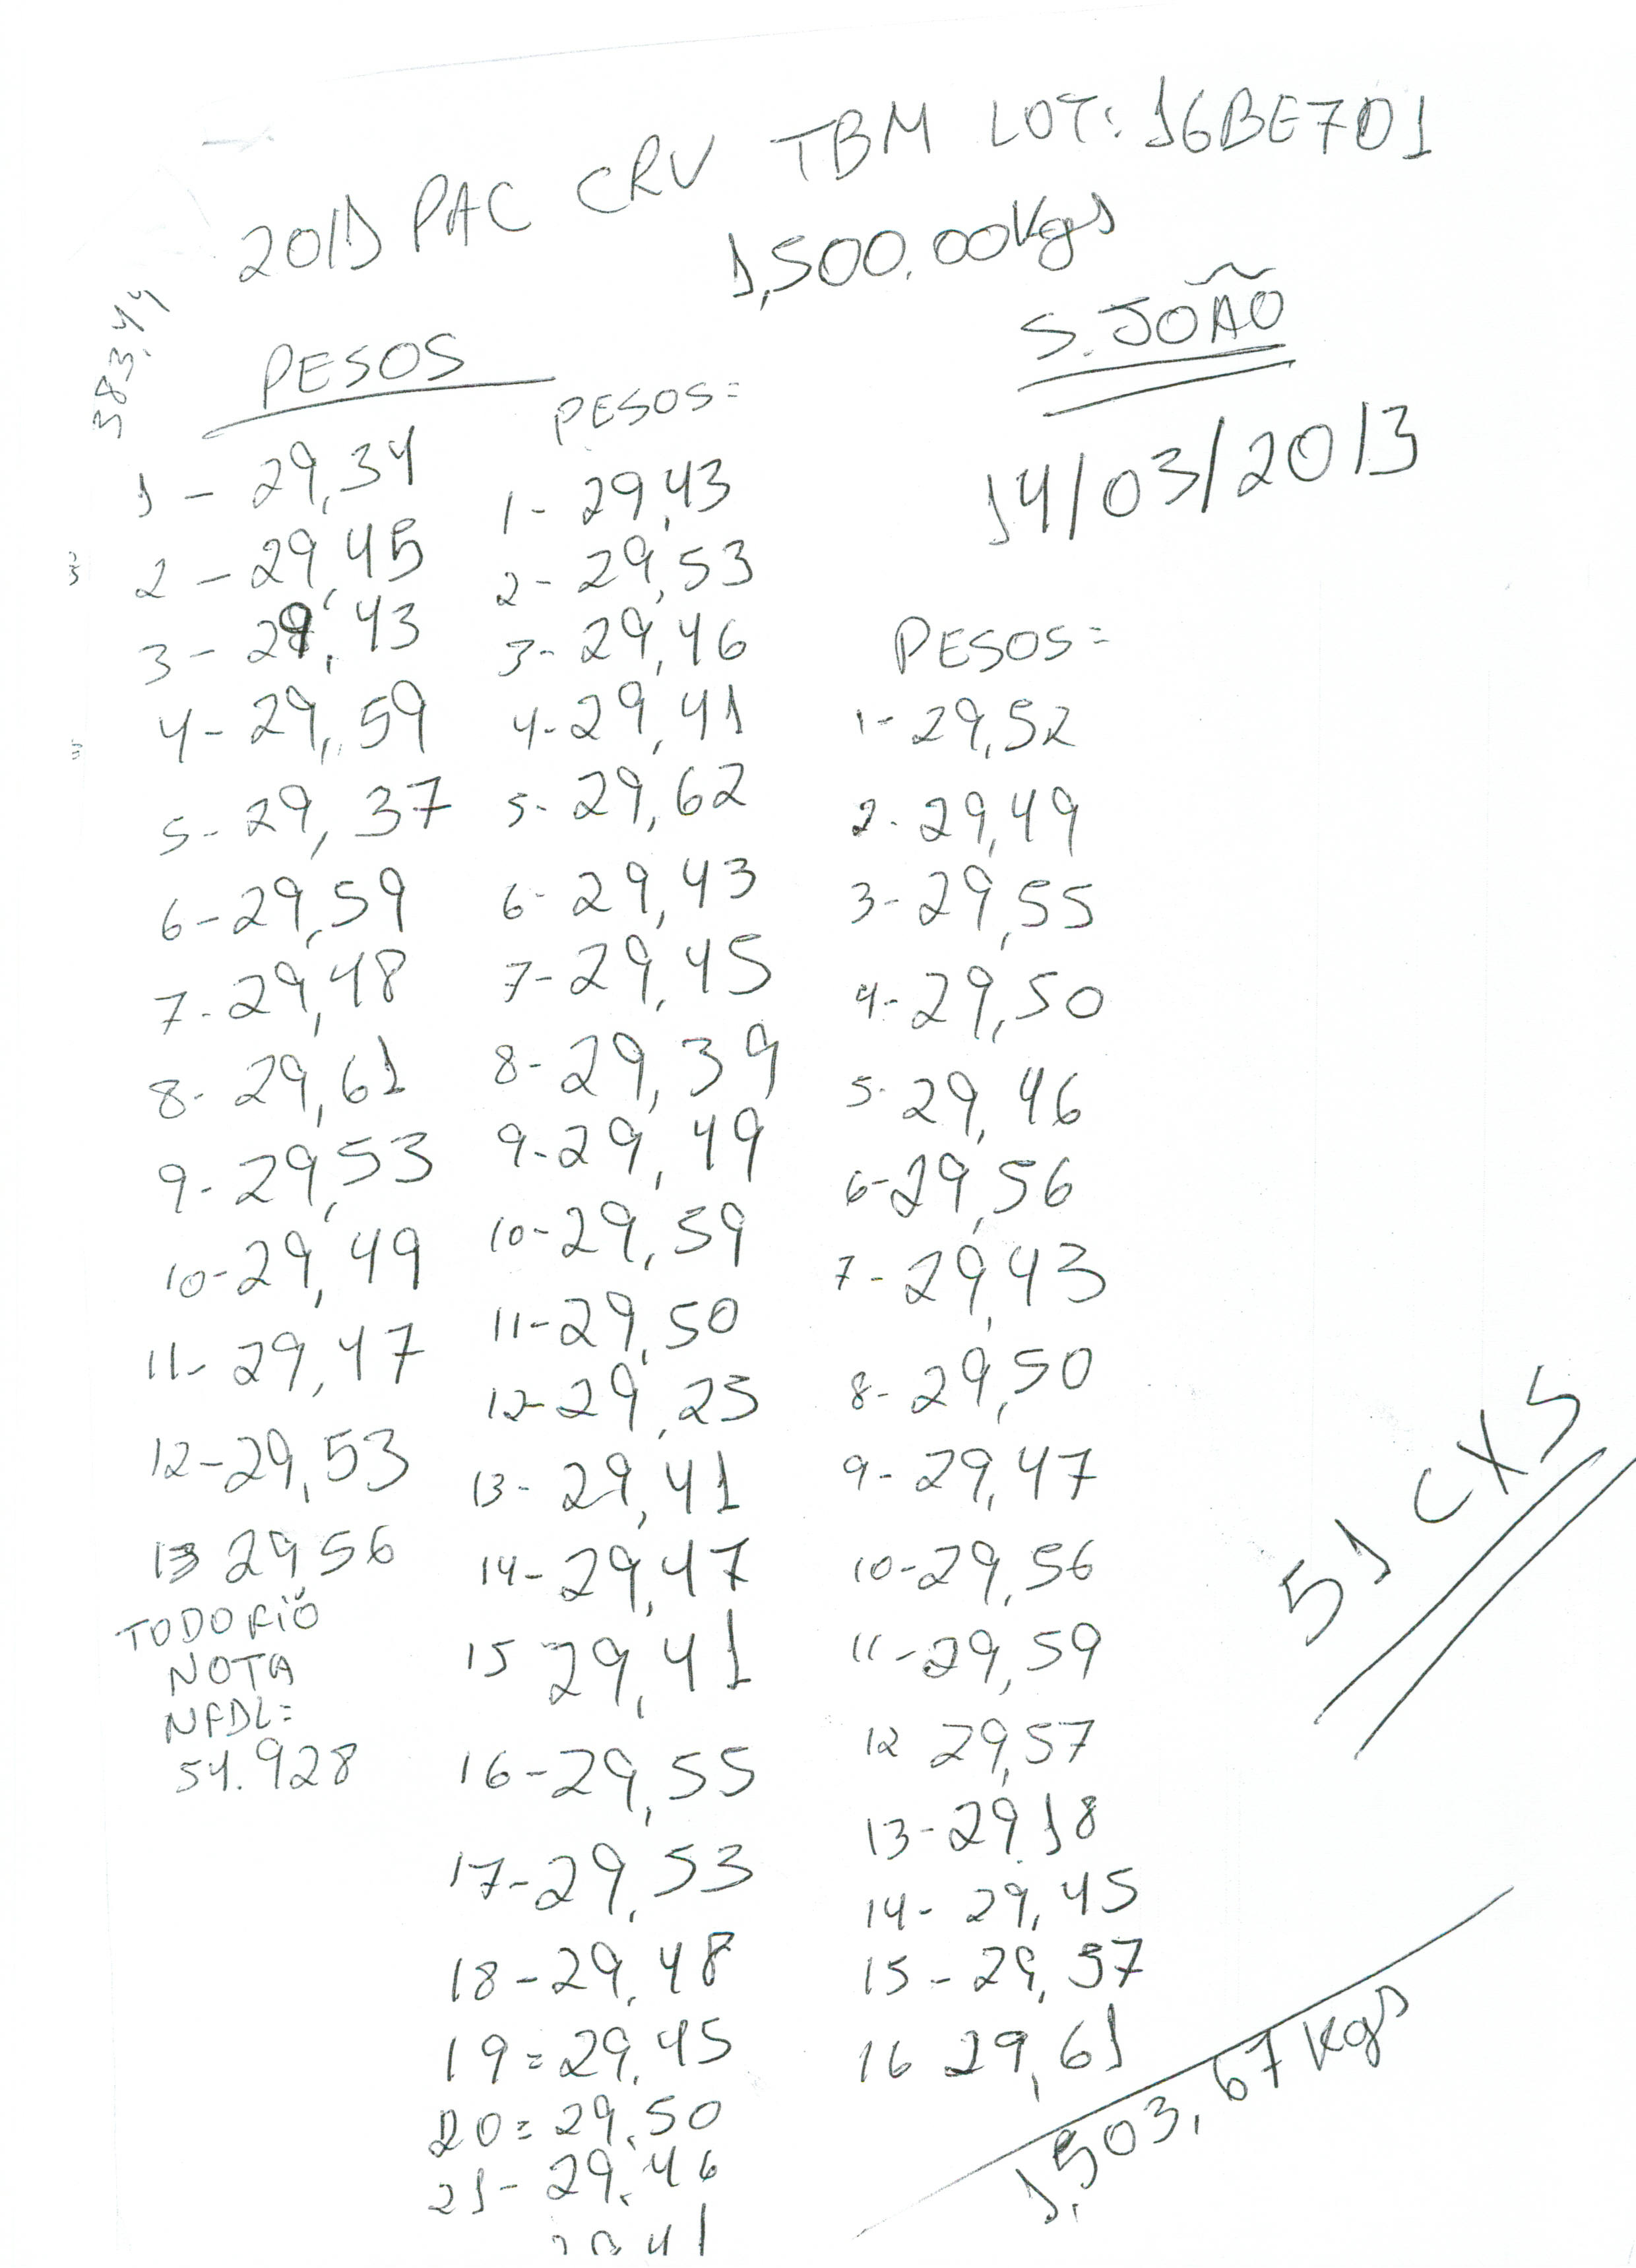 201D PAC CRV TBM LOT: 16BE7D1
1,500.00Kgs
S. JOÃO
14/03/2013
383.44
PESOS
1 - 29,34
2 - 29,45
3 - 29,43
4 - 29,59
5 - 29,37
6 - 29,59
7 - 29,48
8 - 29,61
9 - 29,53
10 - 29,49
11 - 29,47
12 - 29,53
13 29,56
NOTA
54.928
PESOS=
1 - 29,43
2 - 29,53
3 - 29,46
4 - 29,41
5 - 29,62
6 - 29,43
7 - 29,45
8 - 29,39
9 - 29,49
10 - 29,59
11 - 29,50
12 - 29,23
13 - 29,41
14 - 29,47
15 29,41
16 - 29,55
17 - 29,53
18 - 29,48
19 = 29,45
20 = 29,50
21 - 29,46
PESOS=
1 - 29,52
2 - 29,49
3 - 29,55
4 - 29,50
5 - 29,46
6 - 29,56
7 - 29,43
8 - 29,50
9 - 29,47
10 - 29,56
11 - 29,59
12 29,57
13 - 29,18
14 - 29,45
15 - 29,57
16 29,61
51 CXS
1,503,67 Kgs